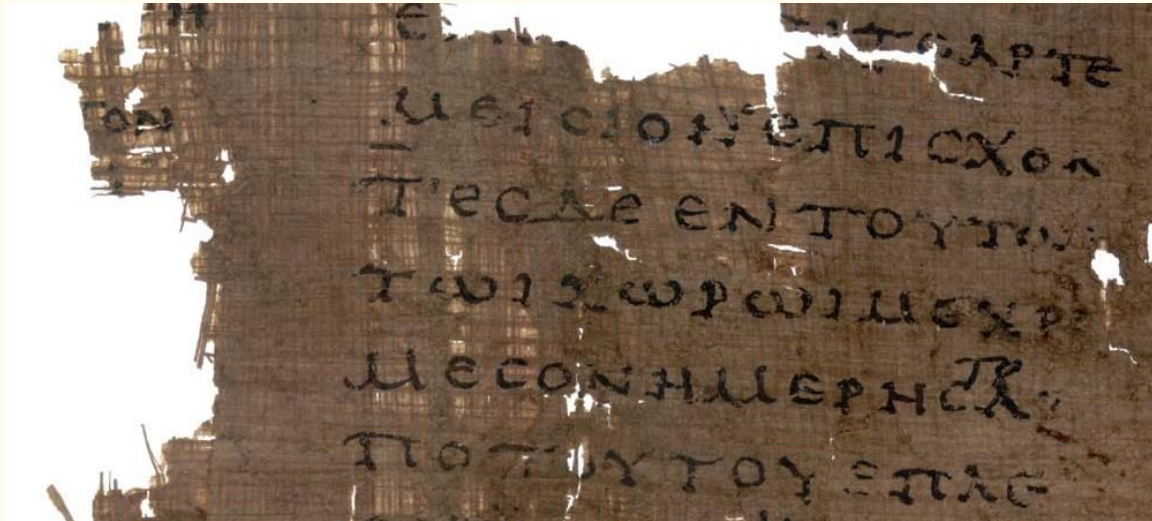 ΤΟΑΡΤΕ
ΤΟΝ ΜΕΙϹΙΟΝΕΠΙϹΧΟΝ
ΤΕϹΔΕΕΝΤΟΥΤΩΙ
ΤΩΙΧΩΡΩΙΜΕΧΡΙ
ΜΕϹΟΝΗΜΕΡΗϹΤΟΑ
ΠΟΤΟΥΤΟΥΕΠΛΕ